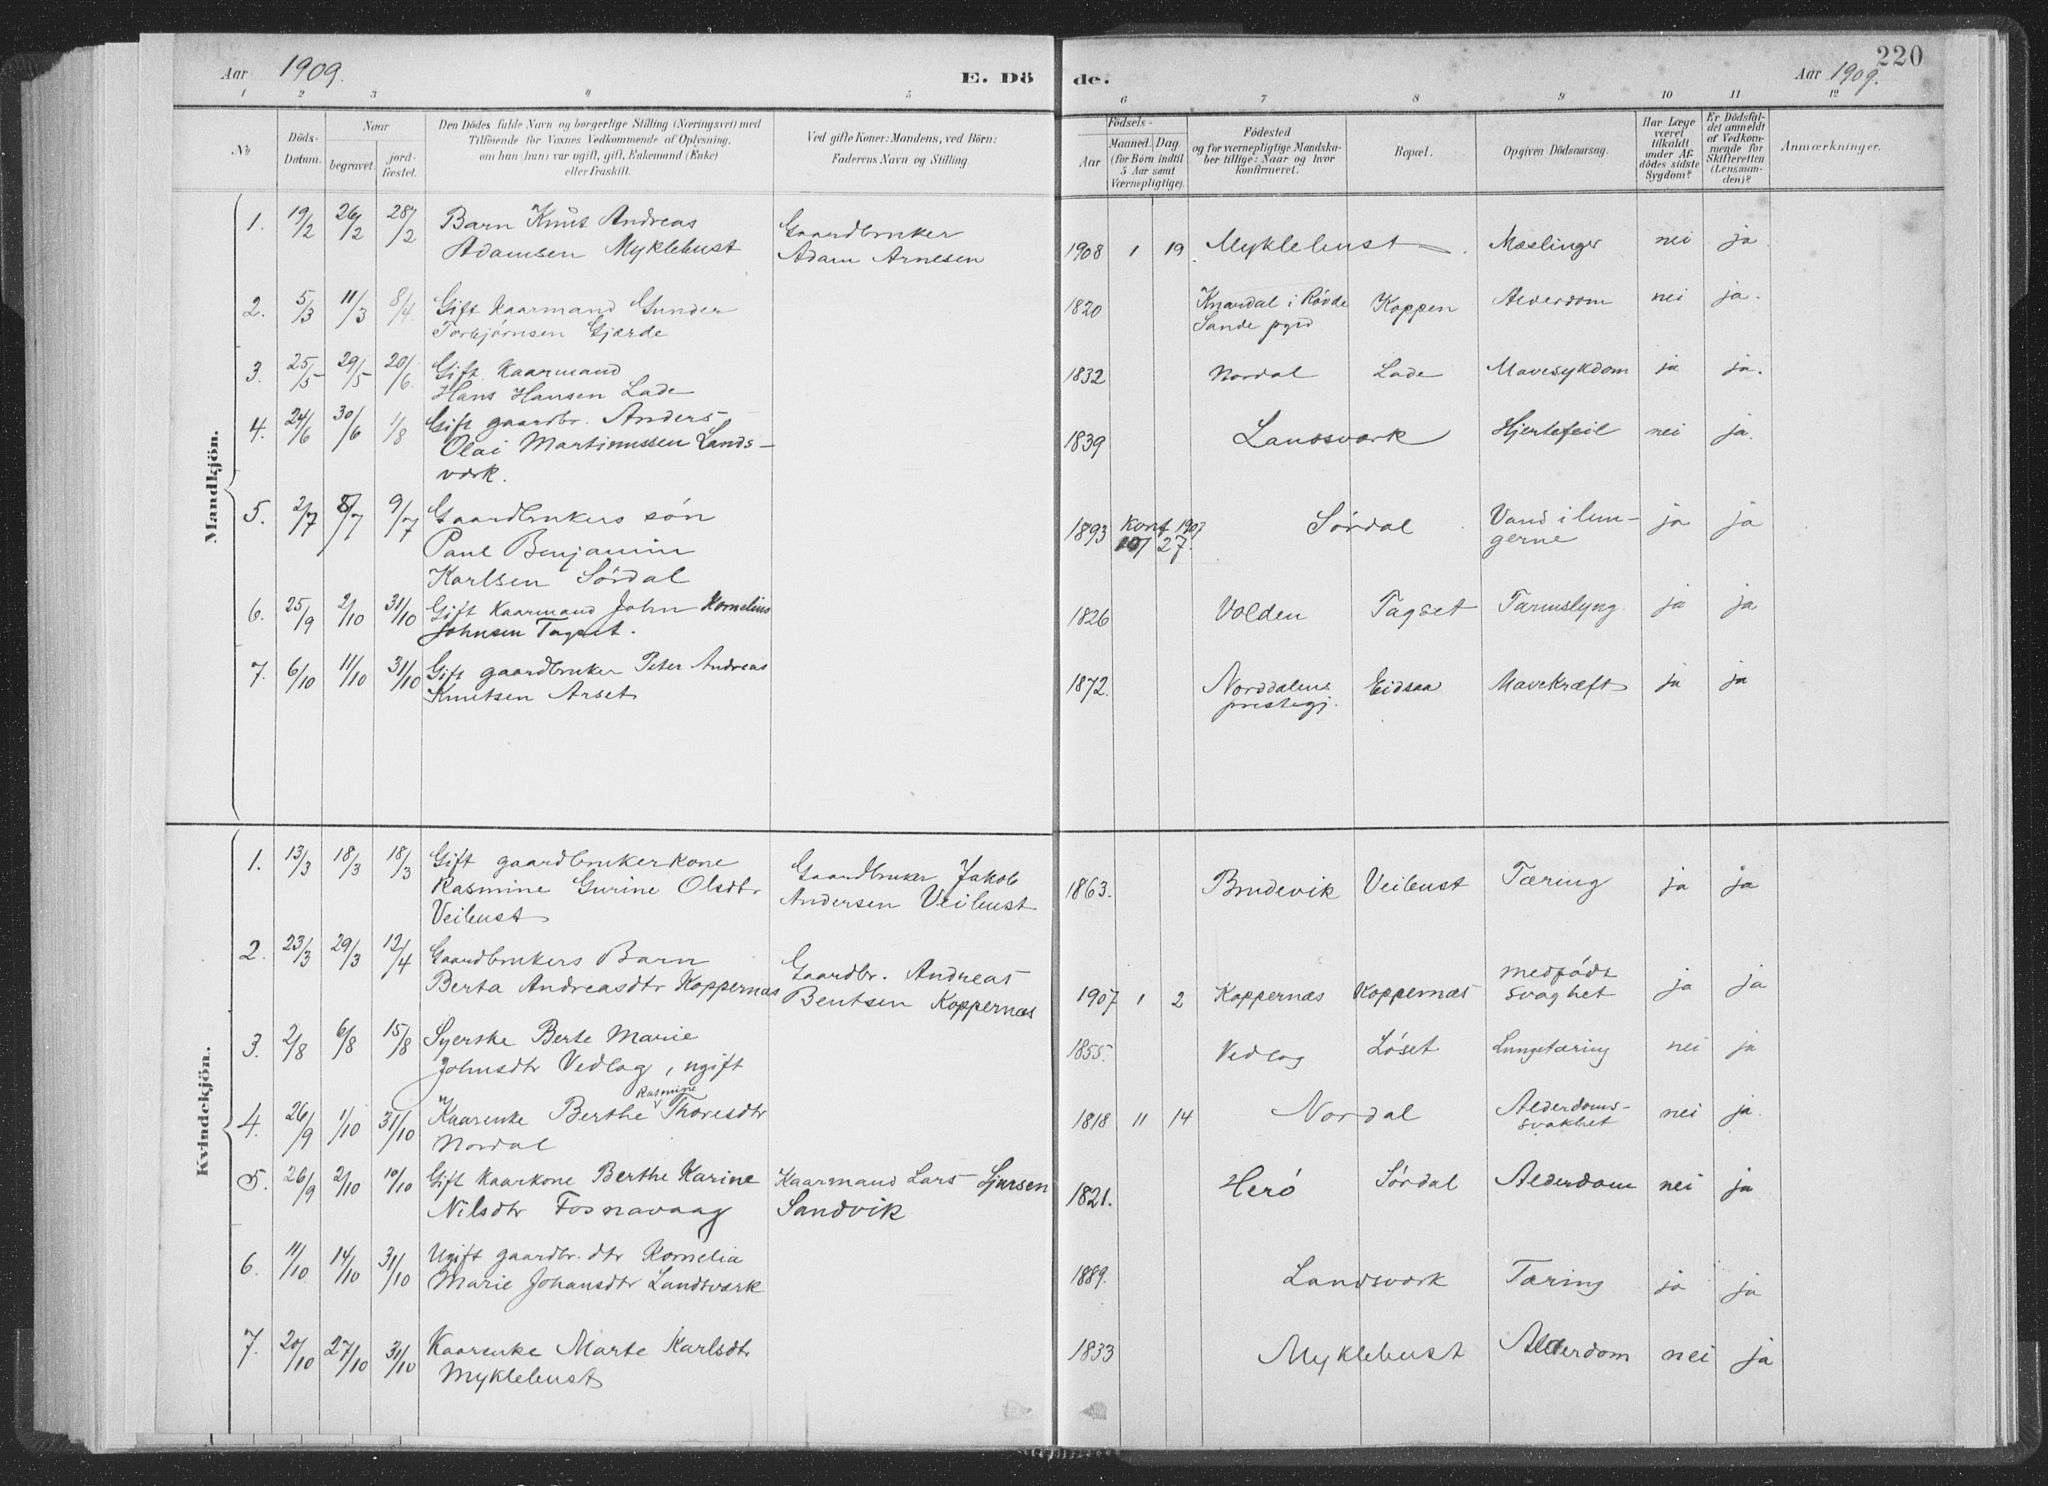 220
Aar 1909. E. Dö de. Aar 1909.
1 2 3 4 5 6 7 8 9 10 11 12
No
Döds-Datum.
Naar
begravet.
jord-fæstet.
Den Dödes fulde Navn og borgerlige Stilling (Næringsvei) med
Tilföiende for Voxnes Vedkommende af Oplysning,
om han (hun) var ugift, gift, Enkemand (Enke)
eller fraskilt.
Ved gifte Koner: Mandens, ved Börn:
Faderens Navn og Stilling.
Födsels-
Aar
Maaned. Dag.
(for Börn indtil
5 Aar samt
Værnepligtige).
Födested
og for værnepligtige Mandska-
ber tillige: Naar og hvor
konfirmeret.
Bopæl.
Opgiven Dödsaarsag.
Har Læge
været
tilkaldt
under Af-
dödes sidste
Sygdom?
Er Dödsfal-
det anmeldt
af Vedkom-
mende for
Skifteretten
(Lensman-
den)?
Anmærkninger.
Mandkjön.
1. 19/2 26/2 28/2 Barn Knut Andreas Gaardbruker
Adamsen Myklebust Adam Arnesen 1908 1 19 Myklebust Mæslinger nei ja
2. 5/3 11/3 8/4 Gift Kaarmand Gunder 1820 Knardal i Røvde Koppen Alderdom nei ja.
Torbjørnsen Gjærde Sande pgrd
3. 25/5 29/5 20/6 Gift Kaarmand 1832 Nordal Lade Mavesykdom ja ja.
Hans Hansen Lade
4. 24/6 30/6 1/8 Gift gaardbr. Anders 1839 Landsverk Hjertefeil nei ja.
Olai Martinussen Lands-
værk.
5. 2/7 8/7 9/7 Gaardbrukers søn 1893 Konf 1907 Sørdal Vand i lun- ja ja
Paul Benjamin 10/ 27. gerne
Karlsen Sørdal
6. 25/9 2/10 31/10 Gift Kaarmand John Kornelius 1826 Volden Tagset Tarmslyng. ja ja
Johnsen Tagset.
7. 6/10 11/10 31/10 Gift gaardbruker Peter Andreas 1872. Norddalens Eidsaa Mavekræft ja ja
Knutsen Arset prestegj.
Kvindekjön.
1. 13/3 18/3 18/3 Gift gaardbrukerkone Gaardbruker Jakob 1863. Brudevik Veibust Tæring ja ja
Rasmine Gurine Olsdtr Andersen Veibust
Veibust
2. 23/3 29/3 12/4 Gaardbrukers Barn Gaardbr. Andreas medfødt
Berta Andreasdtr Koppernæs Bentsen Koppernæs 1907 1 2 Koppernæs Koppernæs svaghet ja ja
3. 2/8 6/8 15/8 Syerske Berte Marie 1855. Vedlog Løset Lungetæring nei ja
Johnsdtr Vedlog, ugift
4. 26/9 1/10 31/10 Kaarenke Berthe Rasmine Thoresdtr 1818 11 14 Nordal Alderdoms- nei ja.
Nordal svakhet
5. 26/9 2/10 10/10 Gift Kaarkone Berthe Karine Kaarmand Lars Sjursen 1821. Herø Sørdal Alderdom nei ja
Nilsdtr Fosnavaag Sandvik
6. 11/10 14/10 31/10 Ugift gaardbr. dtr Kornelia 1889. Landsværk Tæring ja ja
Marie Johansdtr Landsværk
7. 20/10 27/10 31/10 Kaarenke Marte Karlsdtr 1833 Myklebust Alderdom nei ja
Myklebust